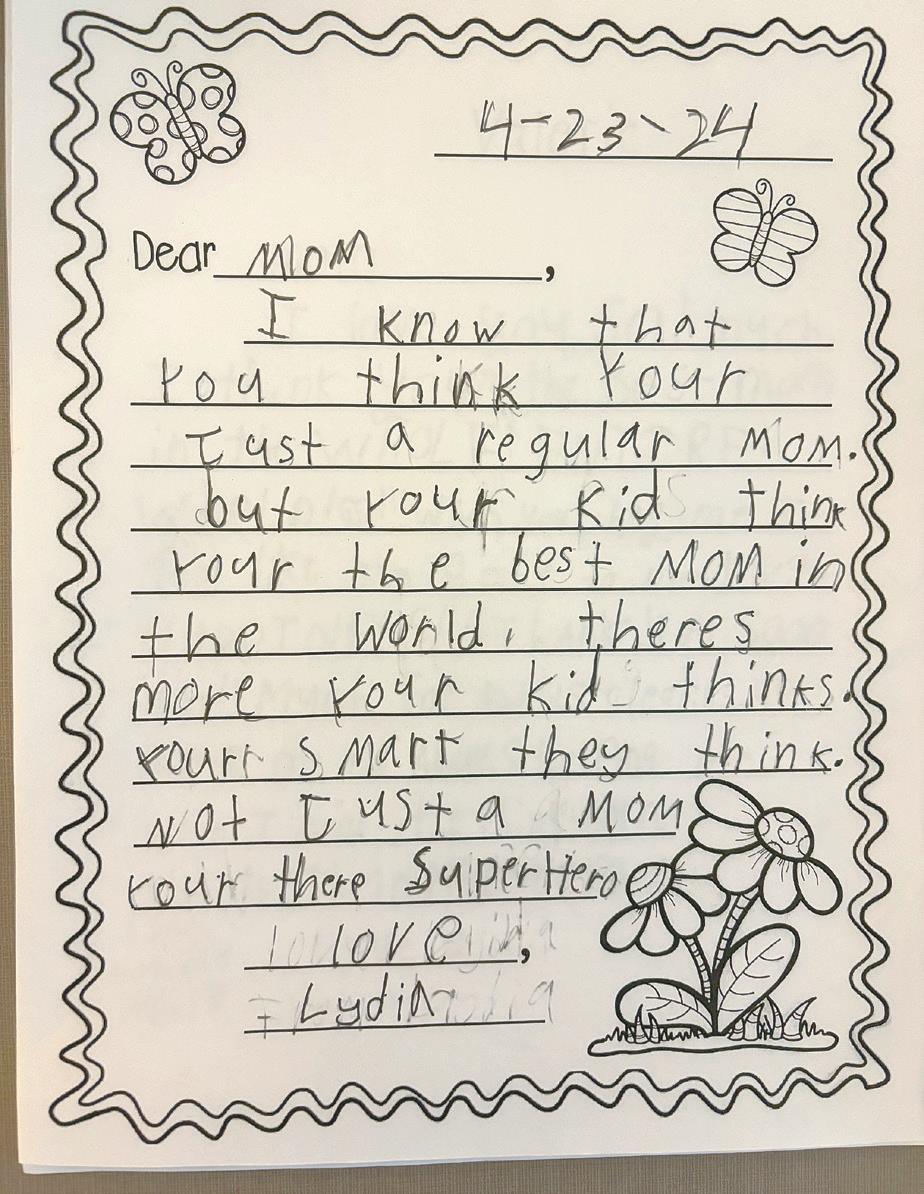 4-23-24
Dear Mom,
I know that
you think your
Just a regular Mom.
but your kid think
your the best Mom in
the world. theres
more your kid thinks.
yourr smart they think.
Not Just a Mom
your there SuperHero
love,
Lydia